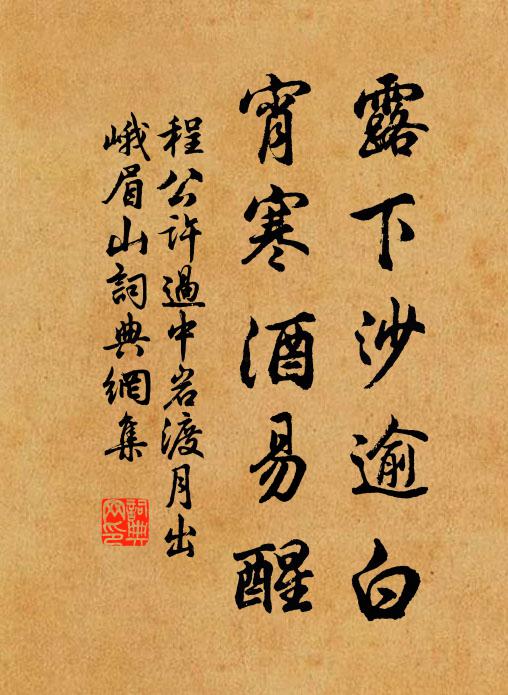 露下沙逾白
宵寒酒易醒
程公许過中岩渡月出
峨眉山詞典網集
詞典网印